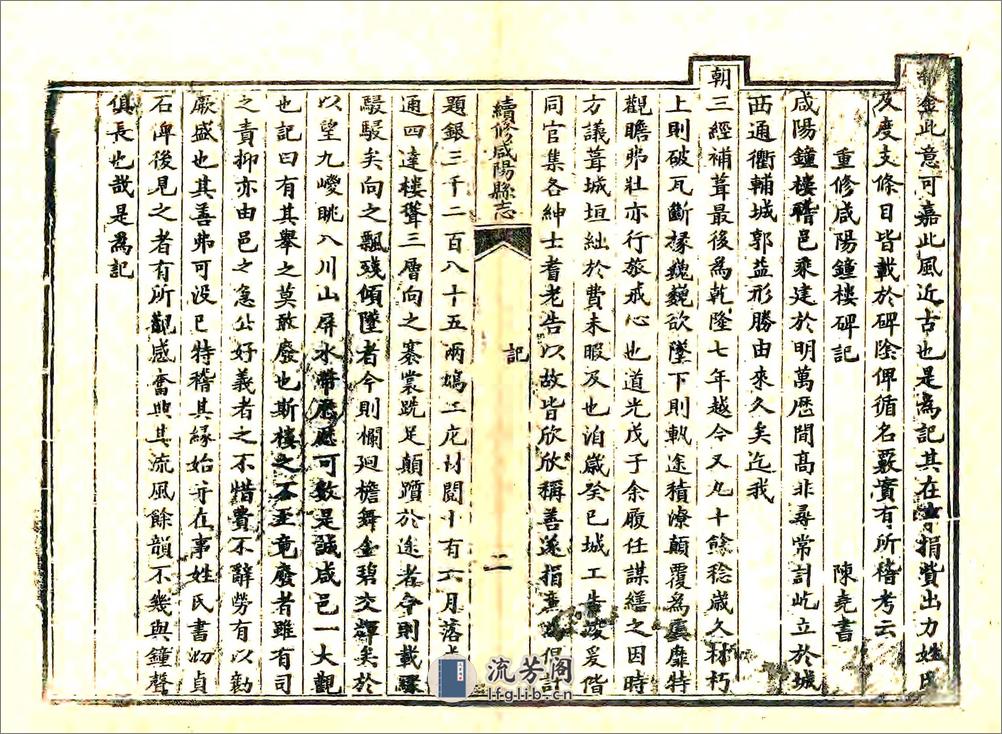 金此意可嘉此風近古也是為記其在事捐貲出力姓氏
及度支條目皆載於碑陰俾循名覈實有所稽考云
重修咸陽鐘樓碑記　陳堯書
咸陽鐘樓稽邑乘建於明萬厯間高非尋常計屹立於城
西通衢輔城郭益形勝由來久矣迄我
朝三經補葺最後為乾隆七年越今又九十餘稔歲久材朽
上則破瓦斷椽巍巍欲墜下則軌途積潦顛覆為虞靡特
觀瞻弗壯亦行旅戒心也道光戊子余履任謀繕之因時
方議葺城垣絀於費未暇及也洎歲癸巳城工告竣爰偕
同官集各紳士耆老告以故皆欣欣稱善遂捐廉為倡計
續修咸陽縣志　記　二
題銀三千二百八十五兩鳩工庀材閱十有六月落成
通四達樓聳三層向之褰裳跣足顛躓於途者今則載驟
駸駸矣向之飄殘傾墜者今則欄廻檐舞金碧交輝矣於
以望九嵕眺八川山屏水帶歷歷可數是誠咸邑一大觀
也記曰有其舉之莫敢廢也斯樓之不至竟廢者雖有司
之責抑亦由邑之急公好義者之不惜費不辭勞有以勷
厥盛也其善弗可没已特稽其緣始并在事姓氏書泐貞
石俾後見之者有所觀感奮興其流風餘韻不幾與鐘聲
俱長也哉是為記
流芳阁
lfglib.cn